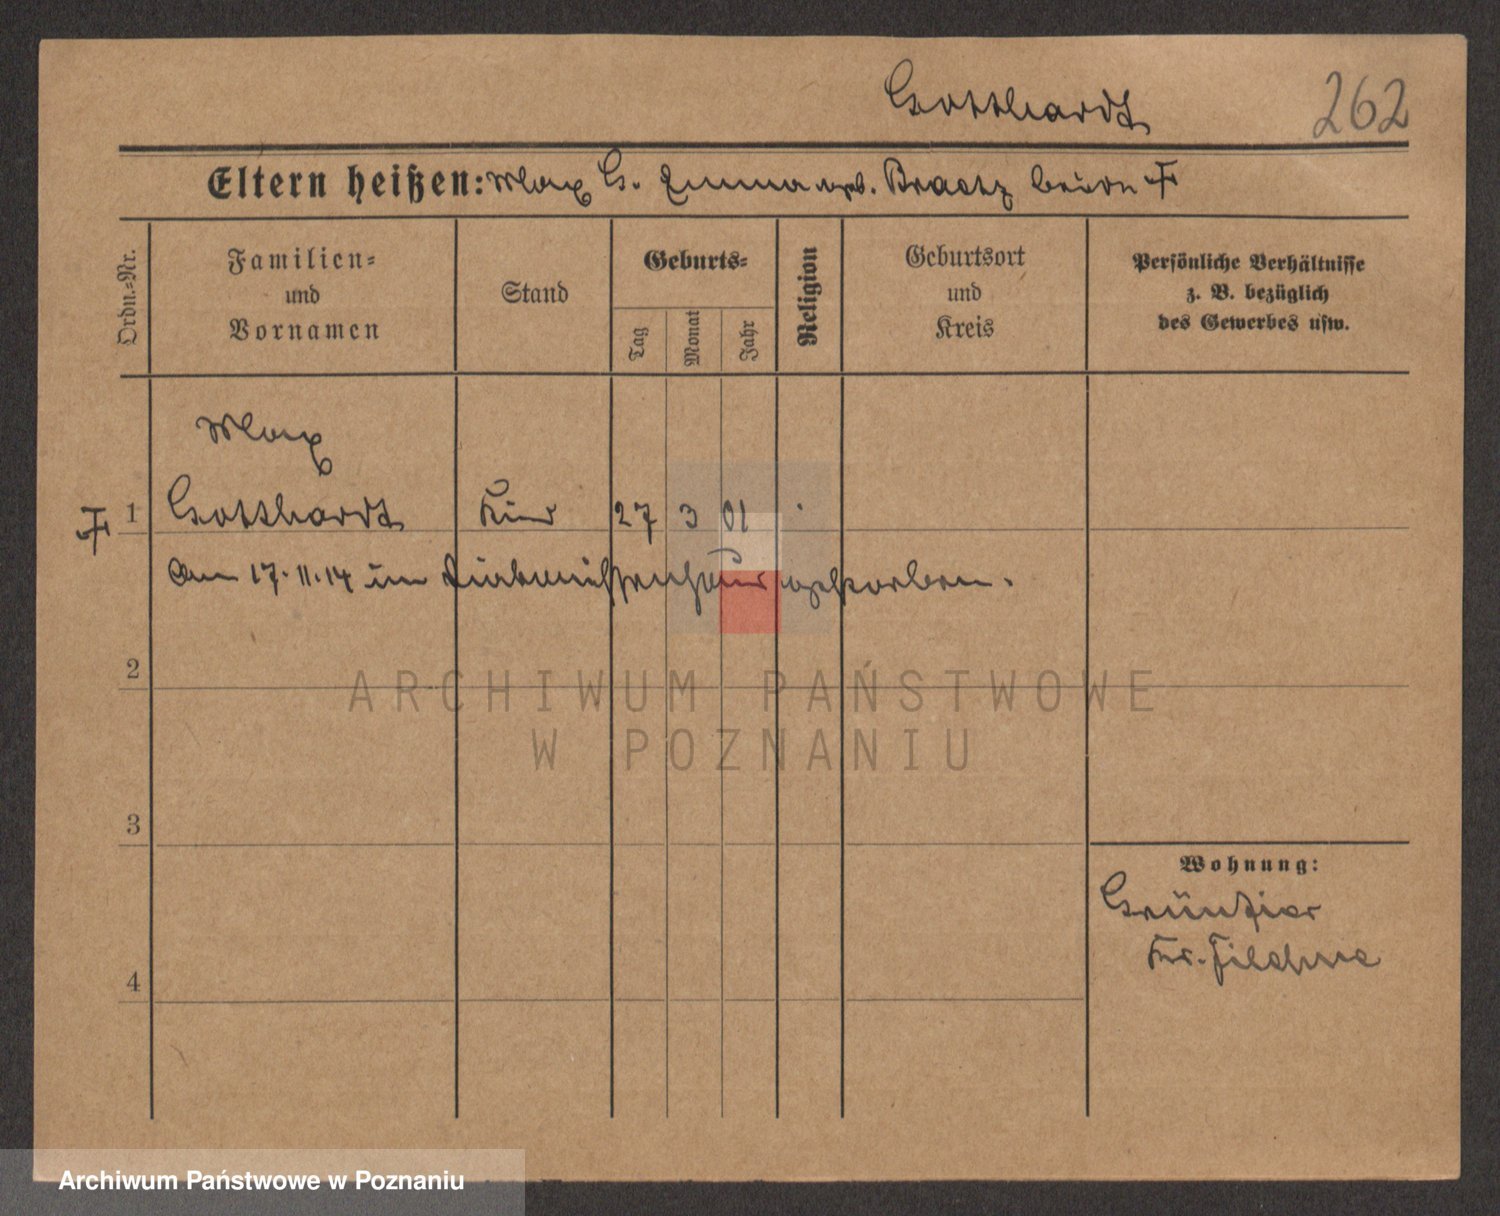 Gotthardt 262
Eltern heißen: Max G. Emma geb. Braatz beide †
Ordn.-Nr.
Familien-
und
Vornamen
Stand
Geburts-
Tag
Monat
Jahr
Religion
Geburtsort
und
Kreis
Persönliche Verhältnisse
z. B. bezüglich
des Gewerbes usw.
Max
† 1 Gotthardt Kind 27 3 01
Am 17.11.14 im gestorben.
2
ARCHIWUM PAŃSTWOWE
W POZNANIU
3
Wohnung:
Grünfier
Kr. Filehne
4
Archiwum Państwowe w Poznaniu